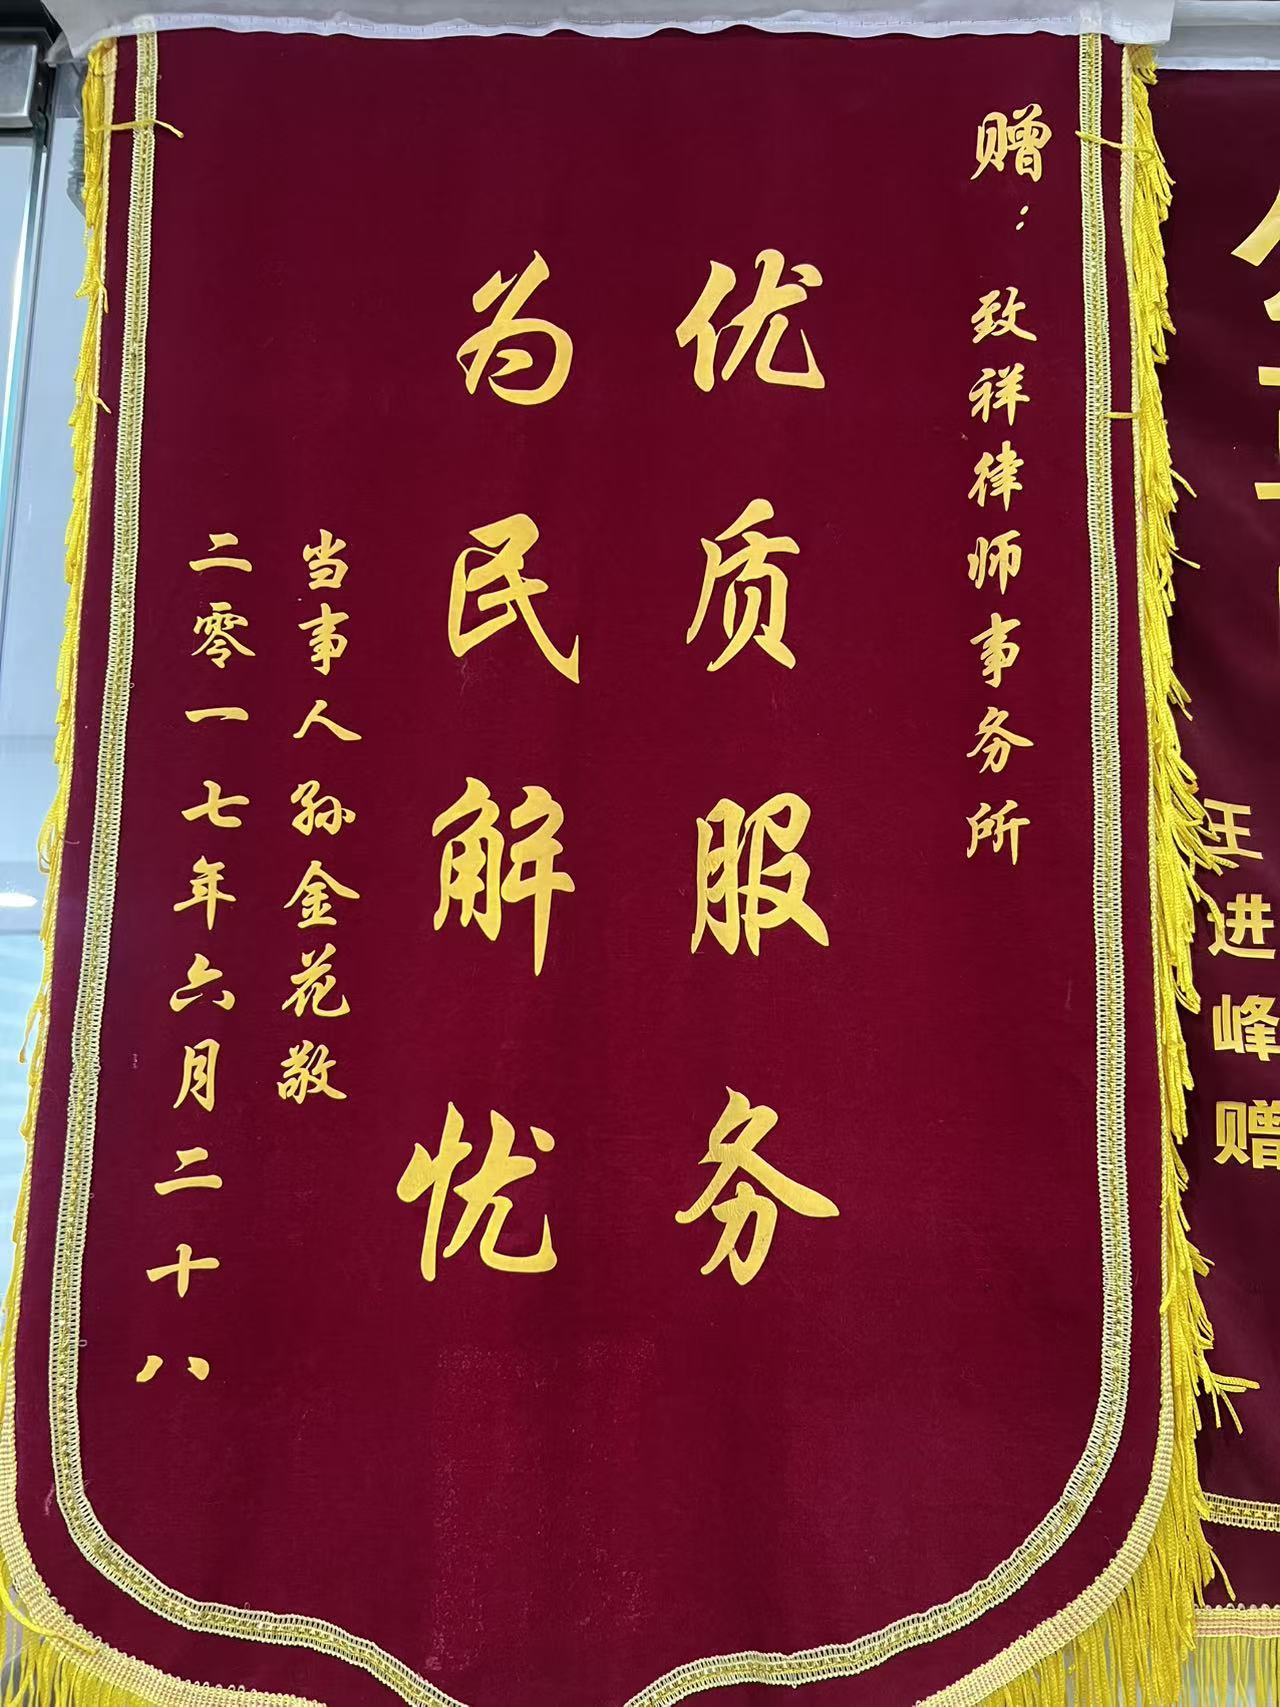 赠：致祥律师事务所
优质服务
为民解忧
当事人孙金花敬
二零一七年六月二十八
王进峰赠